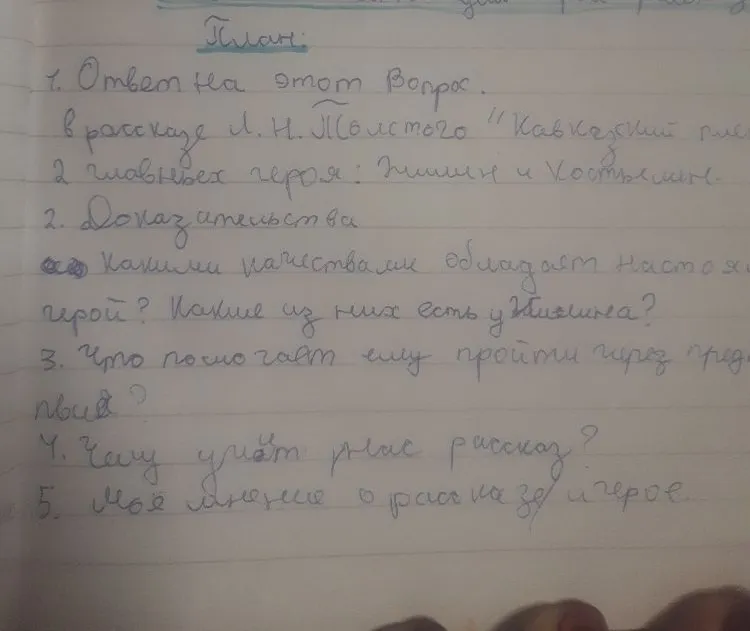 План:
1. Ответ на этот вопрос.
в рассказе Л. Н. Толстого "Кавказский плен
2 главных героя: Жилин и Костылин.
2. Доказательства
какими качествами обладает настоя
герой? Какие из них есть у Жилина?
3. Что помогает ему пройти через пред
?
4. Чему учит нас рассказ?
5. Моё мнение о рассказе и герое.